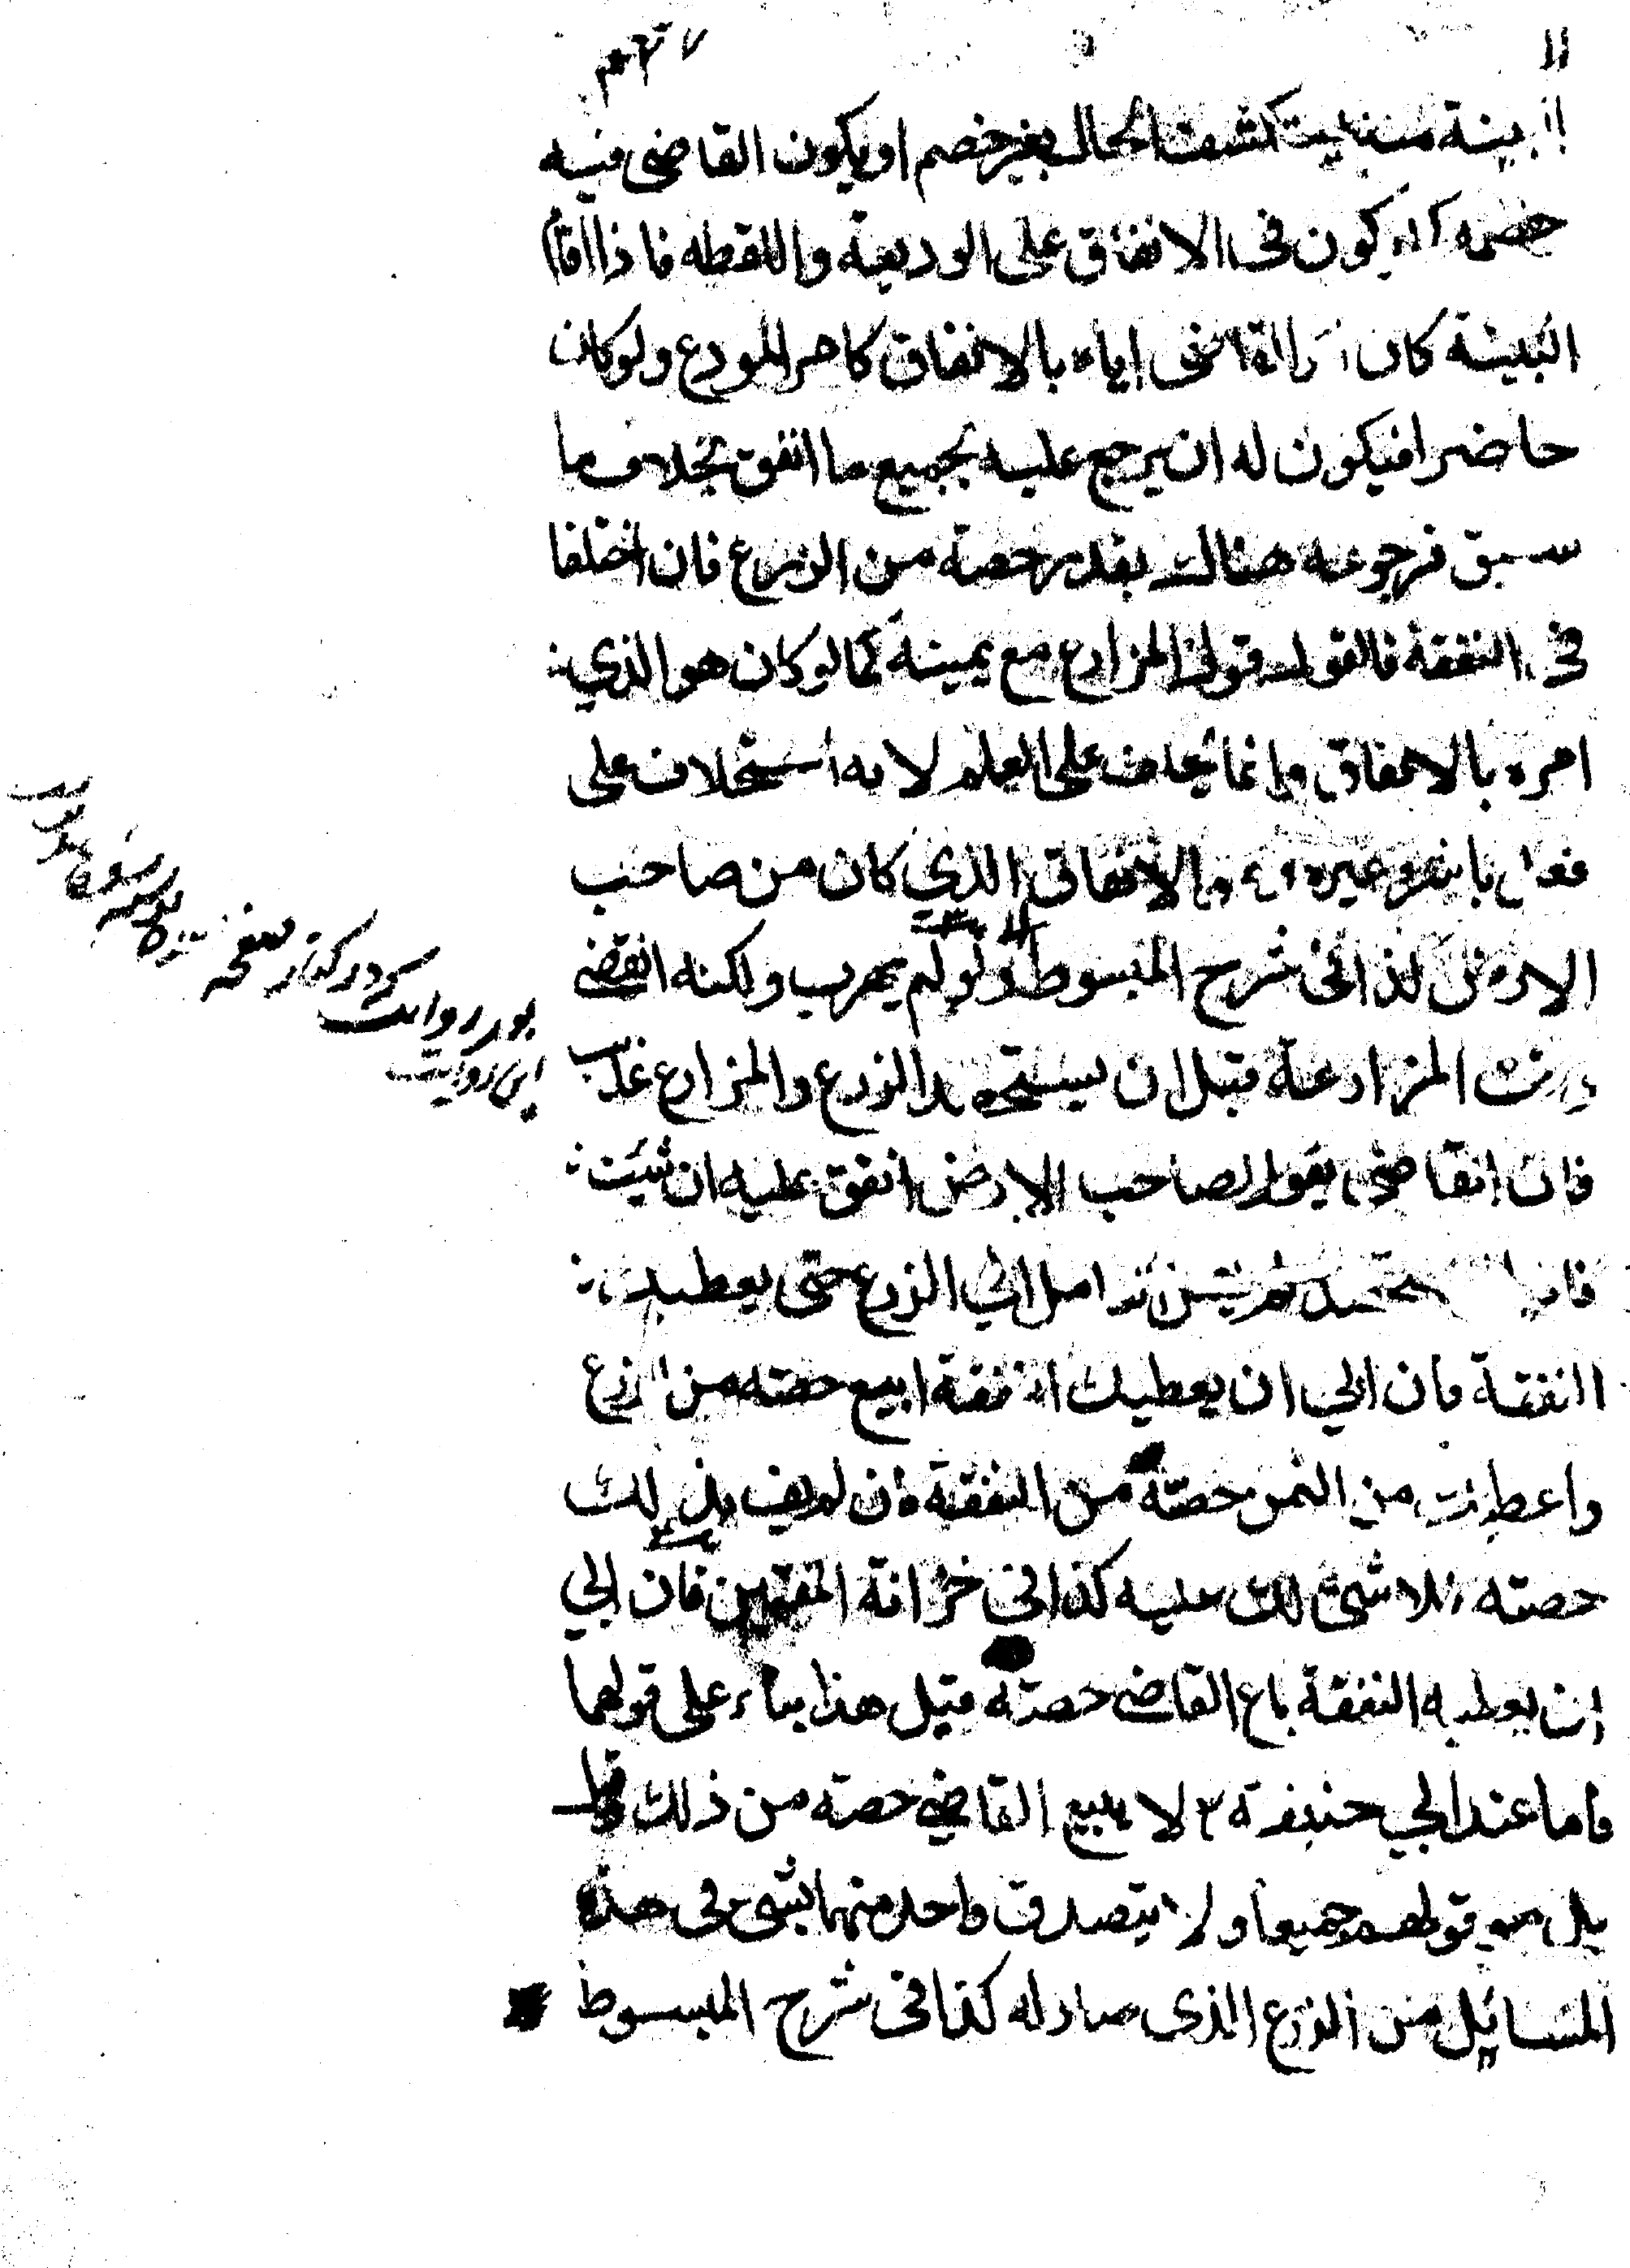 البينة منه ليستكشف الحال بغير خصم او يكون القاضى فيه
خصمه كما يكون فى الانفاق على الوديعة واللقطه فاذا اقام
البينة كان امر القاضى اياه بالانفاق كامر المودع ولو كان
حاضرا فيكون له ان يرجع عليه بجميع ما انفق بخلاف ما
سبق فرجوعه هناك بقدر حصته من الزرع فان اختلفا
فى النفقة فالقول قول المزارع مع يمينه كما لو كان هو الذي
امره بالانفاق وانما يحلف على العلم لانه استحلاف على
فعل باشره غيره وهو الانفاق الذي كان من صاحب
الارض كذا فى شرح المبسوط ولو لم يهرب ولكنه انقضى
وقت المزارعة قبل ان يستحصد الزرع والمزارع غايب
فان القاضى يقول لصاحب الارض انفق عليه ان شئت
فاذا استحصد لم يصل العامل الى الزرع حتى يعطيك
النفقة فان ابى ان يعطيك النفقة ابيع حصته من الزرع
واعطيت من الثمن حصته من النفقة فان لم يف بذلك
حصته فلا شئ لك عليه كذا فى خزانة المفتين فان ابى
ان يعطيه النفقة باع القاضى حصته قيل هذا بناء على قولهما
فاما عند ابي حنيفة لا يبيع القاضى حصته من ذلك وقيل
بل هو قولهم جميعا ولا يتصدق واحد منهما بشئ فى هذه
المسائل من الزرع الذى صار له كذا فى شرح المبسوط
اين روايت
بود در كنار صفحه